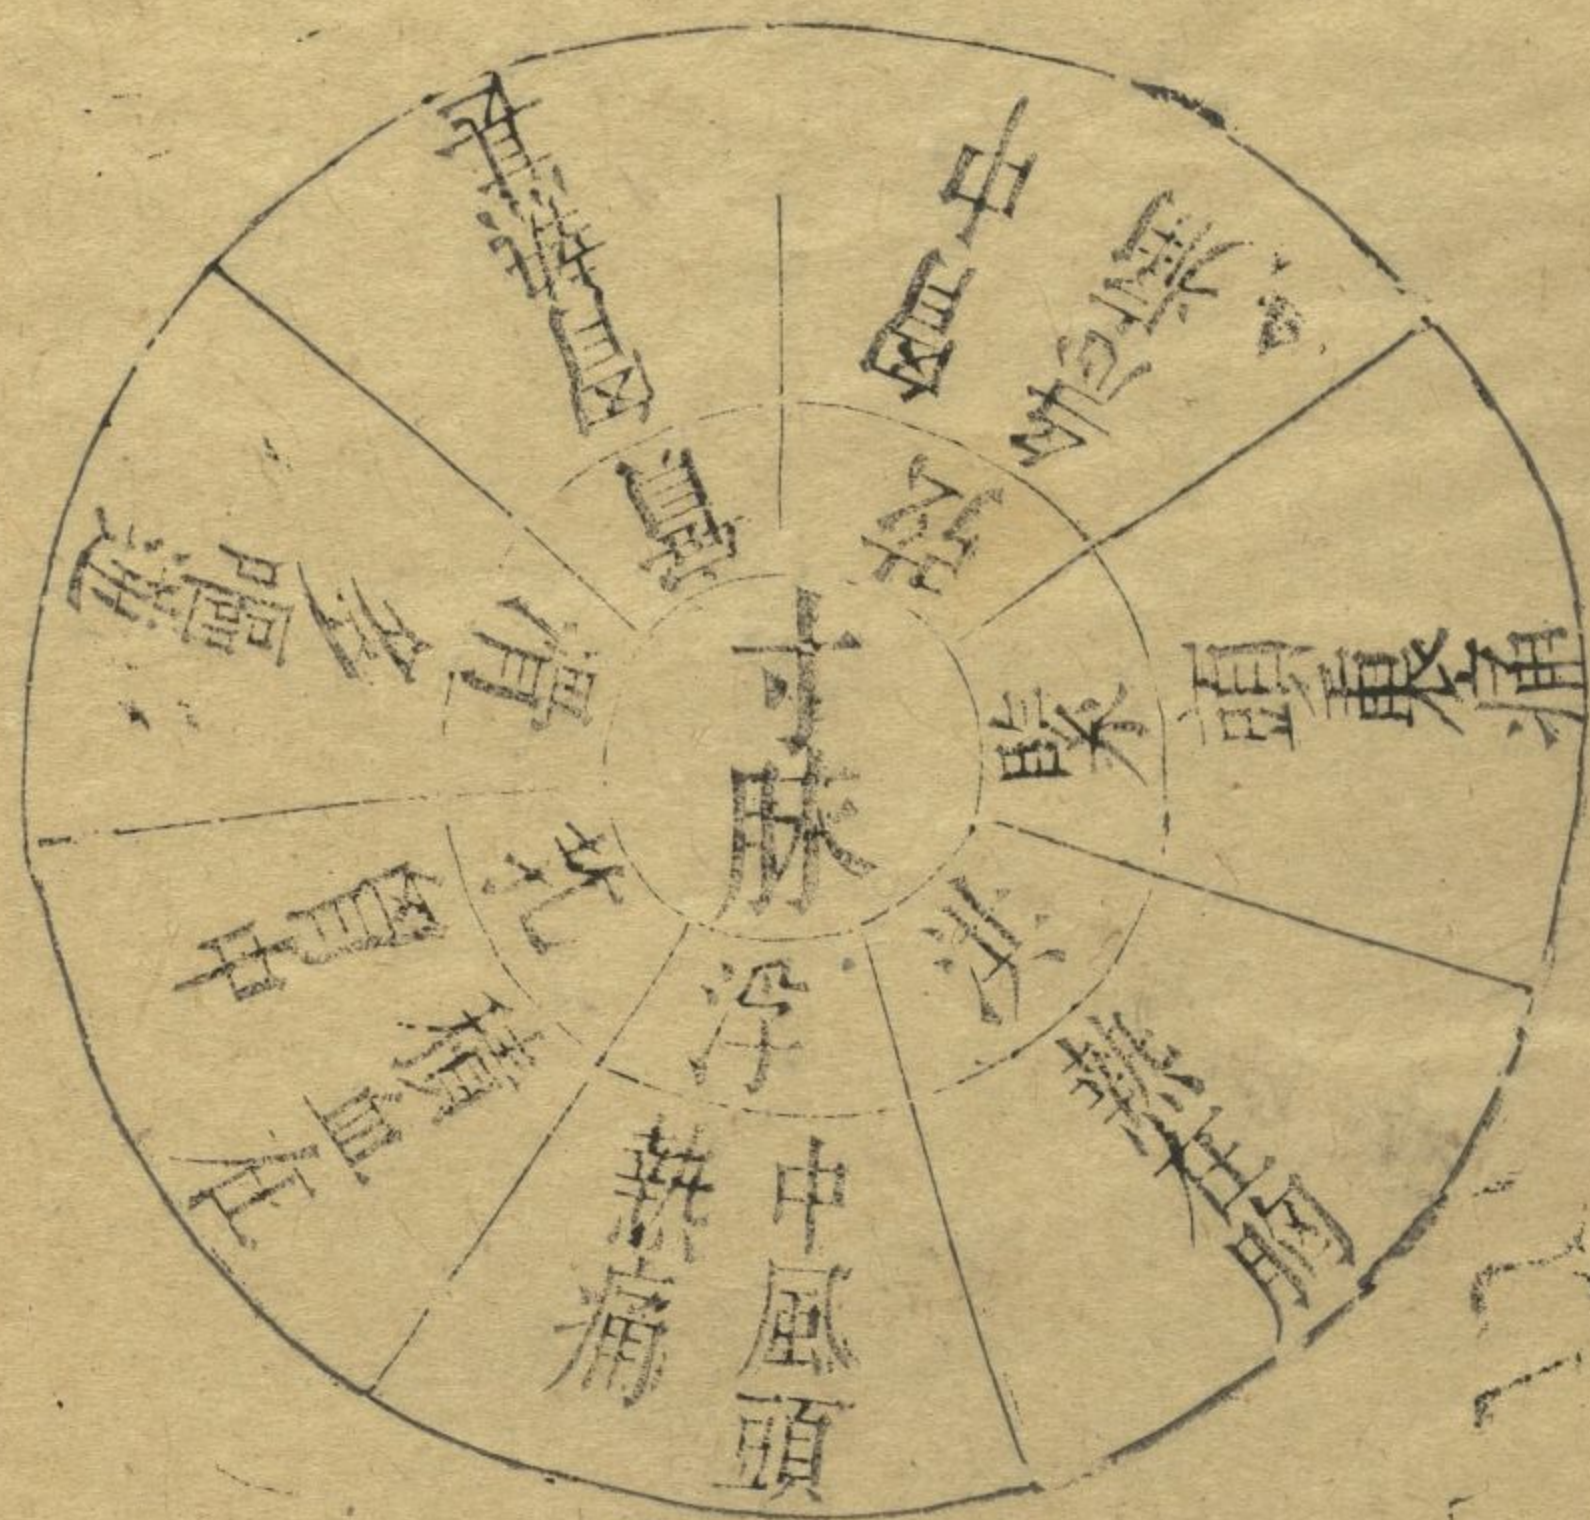 寸脉
浮
中風頭
熱痛
芤
胷中
積血在
滑
多嘔逆
實
胷熱甚
弦
胷中
急痛
緊
頭 痛
洪
熱在胸